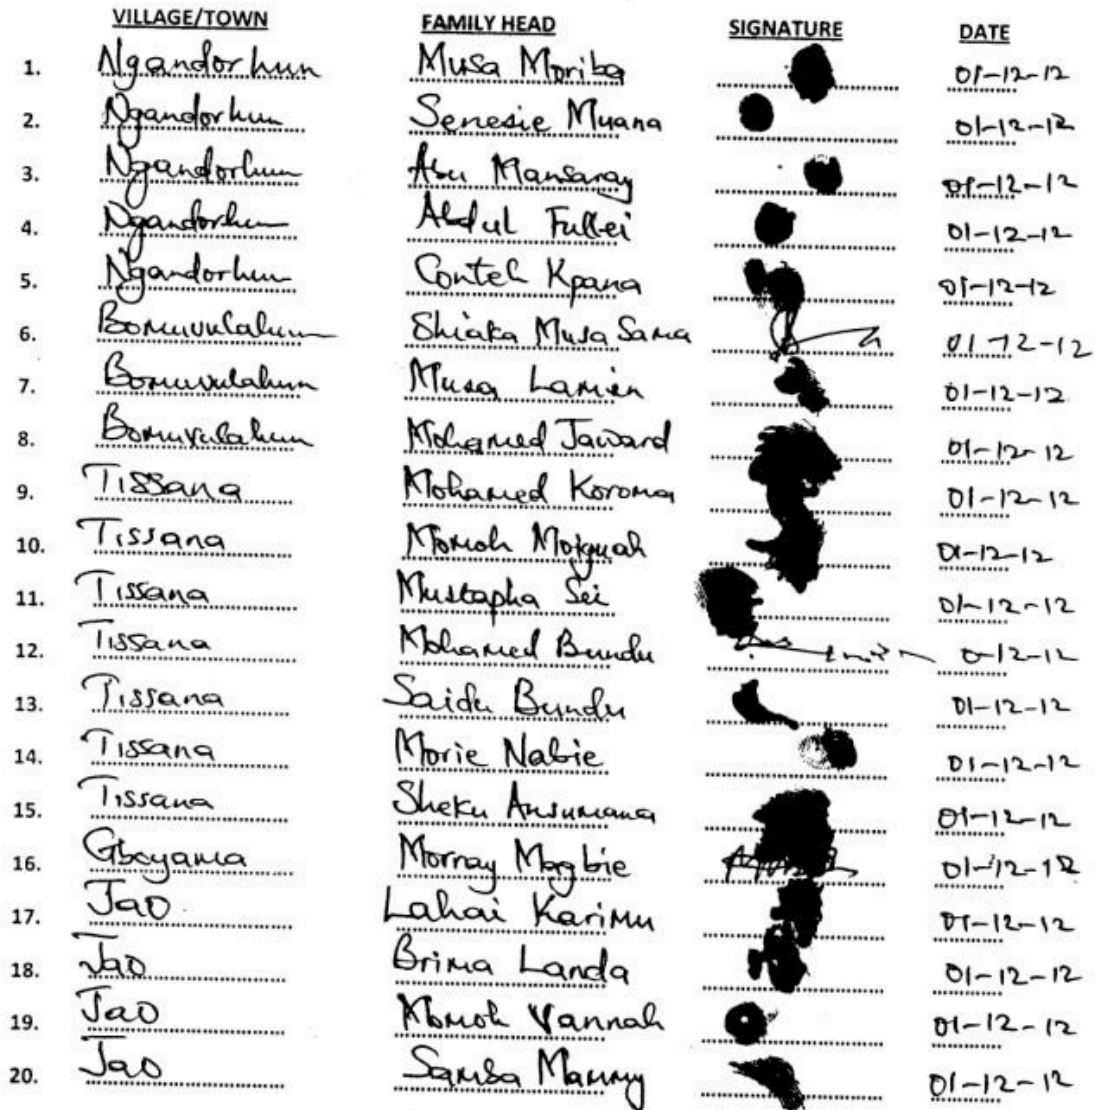 VILLAGE/TOWN FAMILY HEAD SIGNATURE DATE
1. Ngandorhun Musa Moriba 01-12-12
2. Ngandorhun Senesie Muana 01-12-12
3. Ngandorhun Abu Mansaray 01-12-12
4. Ngandorhun Abdul Fullei 01-12-12
5. Ngandorhun Conteh Kpana 01-12-12
6. Bomuvulahun Shiaka Musa Sama 01-12-12
7. Bomuvulahun Musa Lamien 01-12-12
8. Bomuvulahun Mohamed Jaward 01-12-12
9. Tissana Mohamed Koroma 01-12-12
10. Tissana Momoh Moiguah 01-12-12
11. Tissana Mustapha Sei 01-12-12
12. Tissana Mohamed Bundu 0-12-12
13. Tissana Saidu Bundu 01-12-12
14. Tissana Morie Nabie 01-12-12
15. Tissana Sheku Ansumana 01-12-12
16. Gboyama Morray Magbie 01-12-12
17. Jao Lahai Karimu 01-12-12
18. Jao Brima Landa 01-12-12
19. Jao Momoh Vannah 01-12-12
20. Jao Samba Mammy 01-12-12